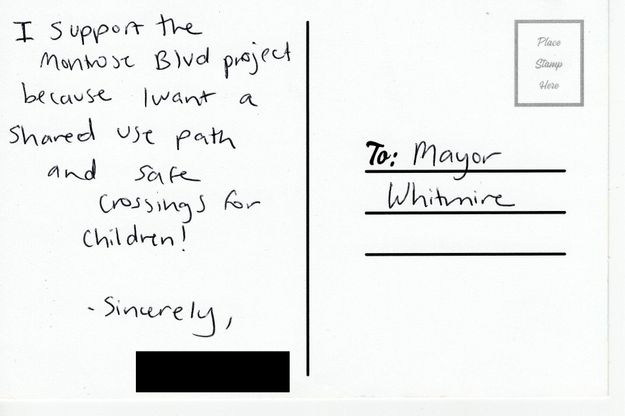 I support the
Montrose Blvd project
because I want a
shared use path
and safe
crossings for
children!
- Sincerely,
Place
Stamp
Here
To: Mayor
Whitmire